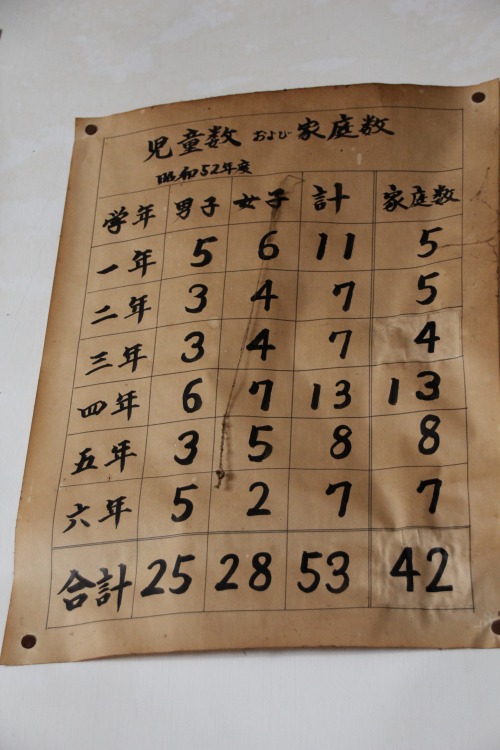 児童数 および 家庭数
昭和52年度
学年 男子 女子 計 家庭数
一年 5 6 11 5
二年 3 4 7 5
三年 3 4 7 4
四年 6 7 13 13
五年 3 5 8 8
六年 5 2 7 7
合計 25 28 53 42